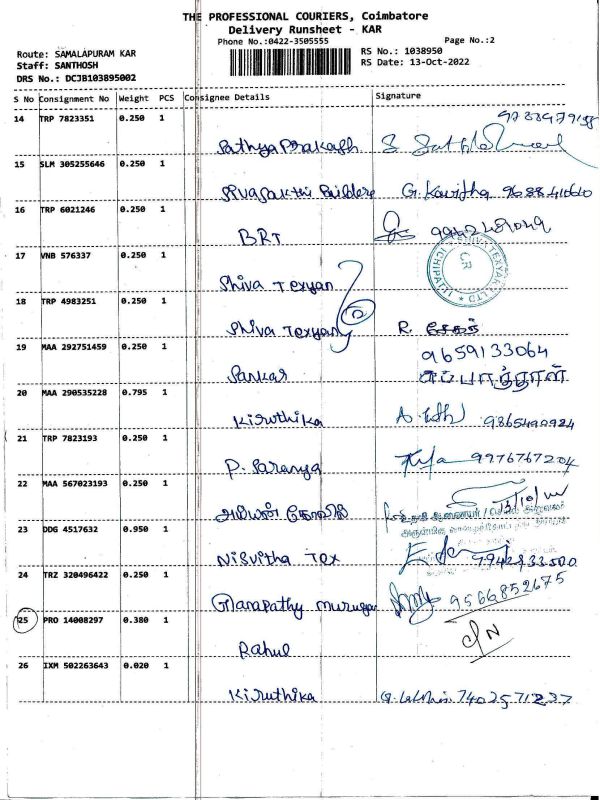 THE PROFESSIONAL COURIERS, Coimbatore
Delivery Runsheet - KAR
Phone No.:0422-3505555
Page No.:2
Route: SAMALAPURAM KAR
RS No.: 1038950
Staff: SANTHOSH
RS Date: 13-Oct-2022
DRS No.: DCJB103895002
S No Consignment No Weight PCS Consignee Details Signature
14 TRP 7823351 0.250 1
Sathya Prakash
15 SLM 305255646 0.250 1
Sivasakthi Builders G. Kavitha
16 TRP 6021246 0.250 1
BRT
17 VNB 576337 0.250 1
Shiva Texyarn
18 TRP 4983251 0.250 1
Shiva Texyarn R. சேகர்
19 MAA 292751459 0.250 1
9659133064
Sankar
20 MAA 290535228 0.795 1
Kiruthika
21 TRP 7823193 0.250 1
P. Saranya 9976767204
22 MAA 567023193 0.250 1
அம்மன் கோவில் 13/10/22
23 DDG 4517632 0.950 1
Nisvitha Tex
24 TRZ 320496422 0.250 1
Ganapathy Murugan 9566852675
25 PRO 14008297 0.380 1
Rahul
26 IXM 502263643 0.020 1
Kiruthika 7402571237